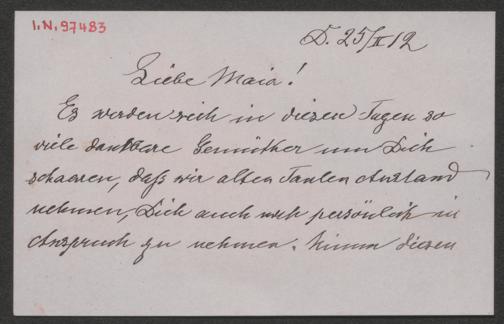 I.N. 97483
D. 25/II 12
Liebe Maia!
Es werden sich in diesen Tagen so
viele dankbare Gemüther um Dich
schaaren, daß wir alten Tanten Anstand
nehmen, Dich auch noch persönlich in
Anspruch zu nehmen. Nimm diesen